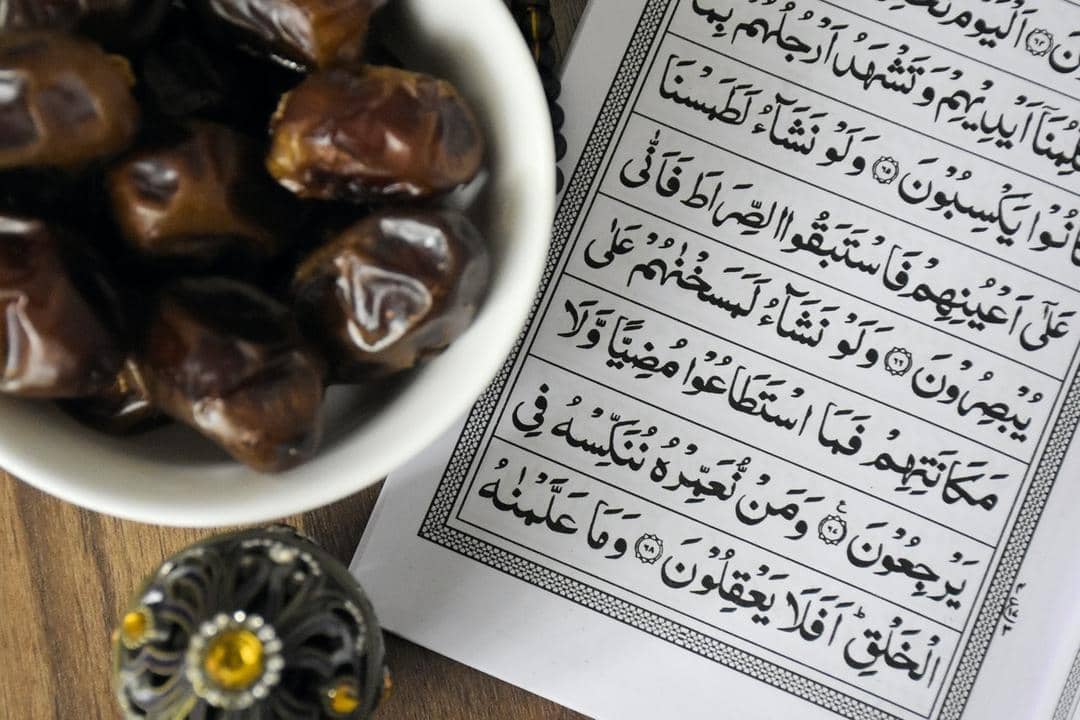 اَلْيَوْمَ
اَيْدِيْهِمْ وَتَشْهَدُ اَرْجُلُهُمْ بِمَا
كَانُوْا يَكْسِبُوْنَ ۶۵ وَلَوْ نَشَآءُ لَطَمَسْنَا
عَلٰٓى اَعْيُنِهِمْ فَاسْتَبَقُوا الصِّرَاطَ فَاَنّٰى
يُبْصِرُوْنَ ۶۶ وَلَوْ نَشَآءُ لَمَسَخْنٰهُمْ عَلٰى
مَكَانَتِهِمْ فَمَا اسْتَطَاعُوْا مُضِيًّا وَّلَا
يَرْجِعُوْنَ ۶۷ وَمَنْ نُّعَمِّرْهُ نُنَكِّسْهُ فِى
الْخَلْقِ ؕ اَفَلَا يَعْقِلُوْنَ ۶۸ وَمَا عَلَّمْنٰهُ